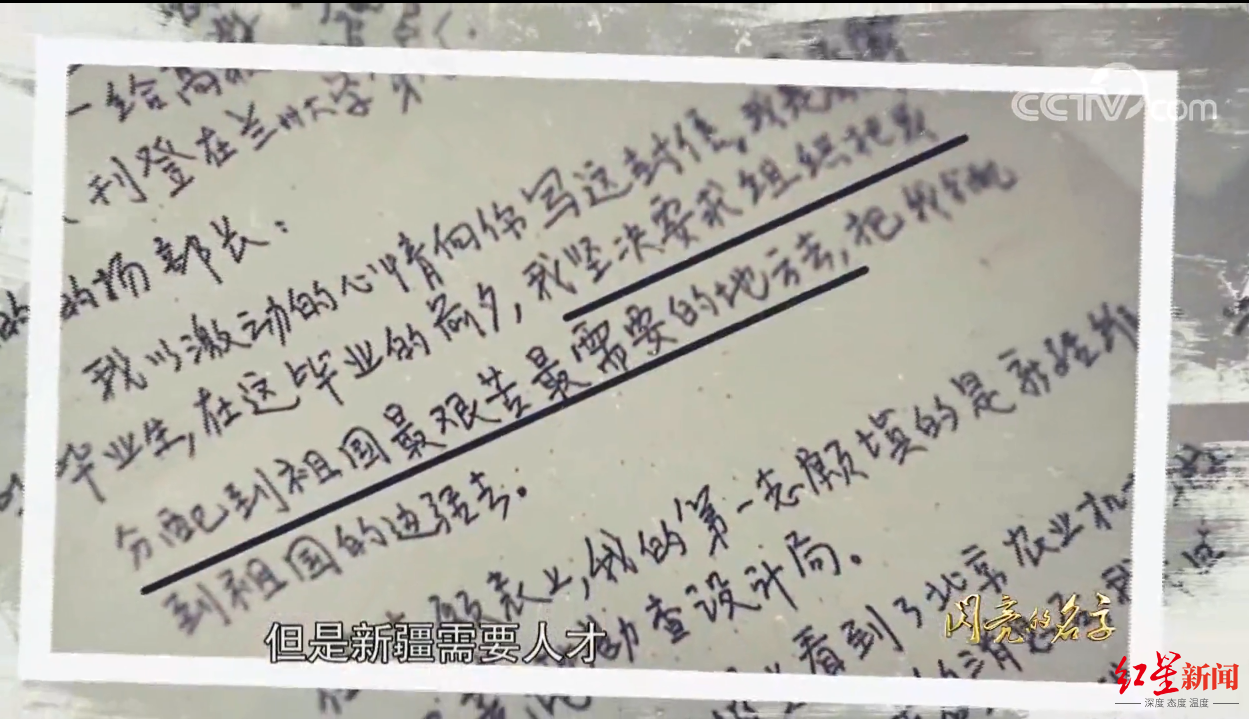 CCTV.com
一给高
刊登在兰州大学
的杨部长：
我以激动的心情向你写这封信，我是
毕业生，在这毕业的前夕，我坚决要求组织把我
分配到祖国最艰苦最需要的地方去，把我分配
到祖国的边疆去。
愿表上，我的第一志愿填的是新疆维
勘查设计局。
看到了北京农业机
的消息
但是新疆需要人才
闪亮的名字
红星新闻
深度 态度 温度